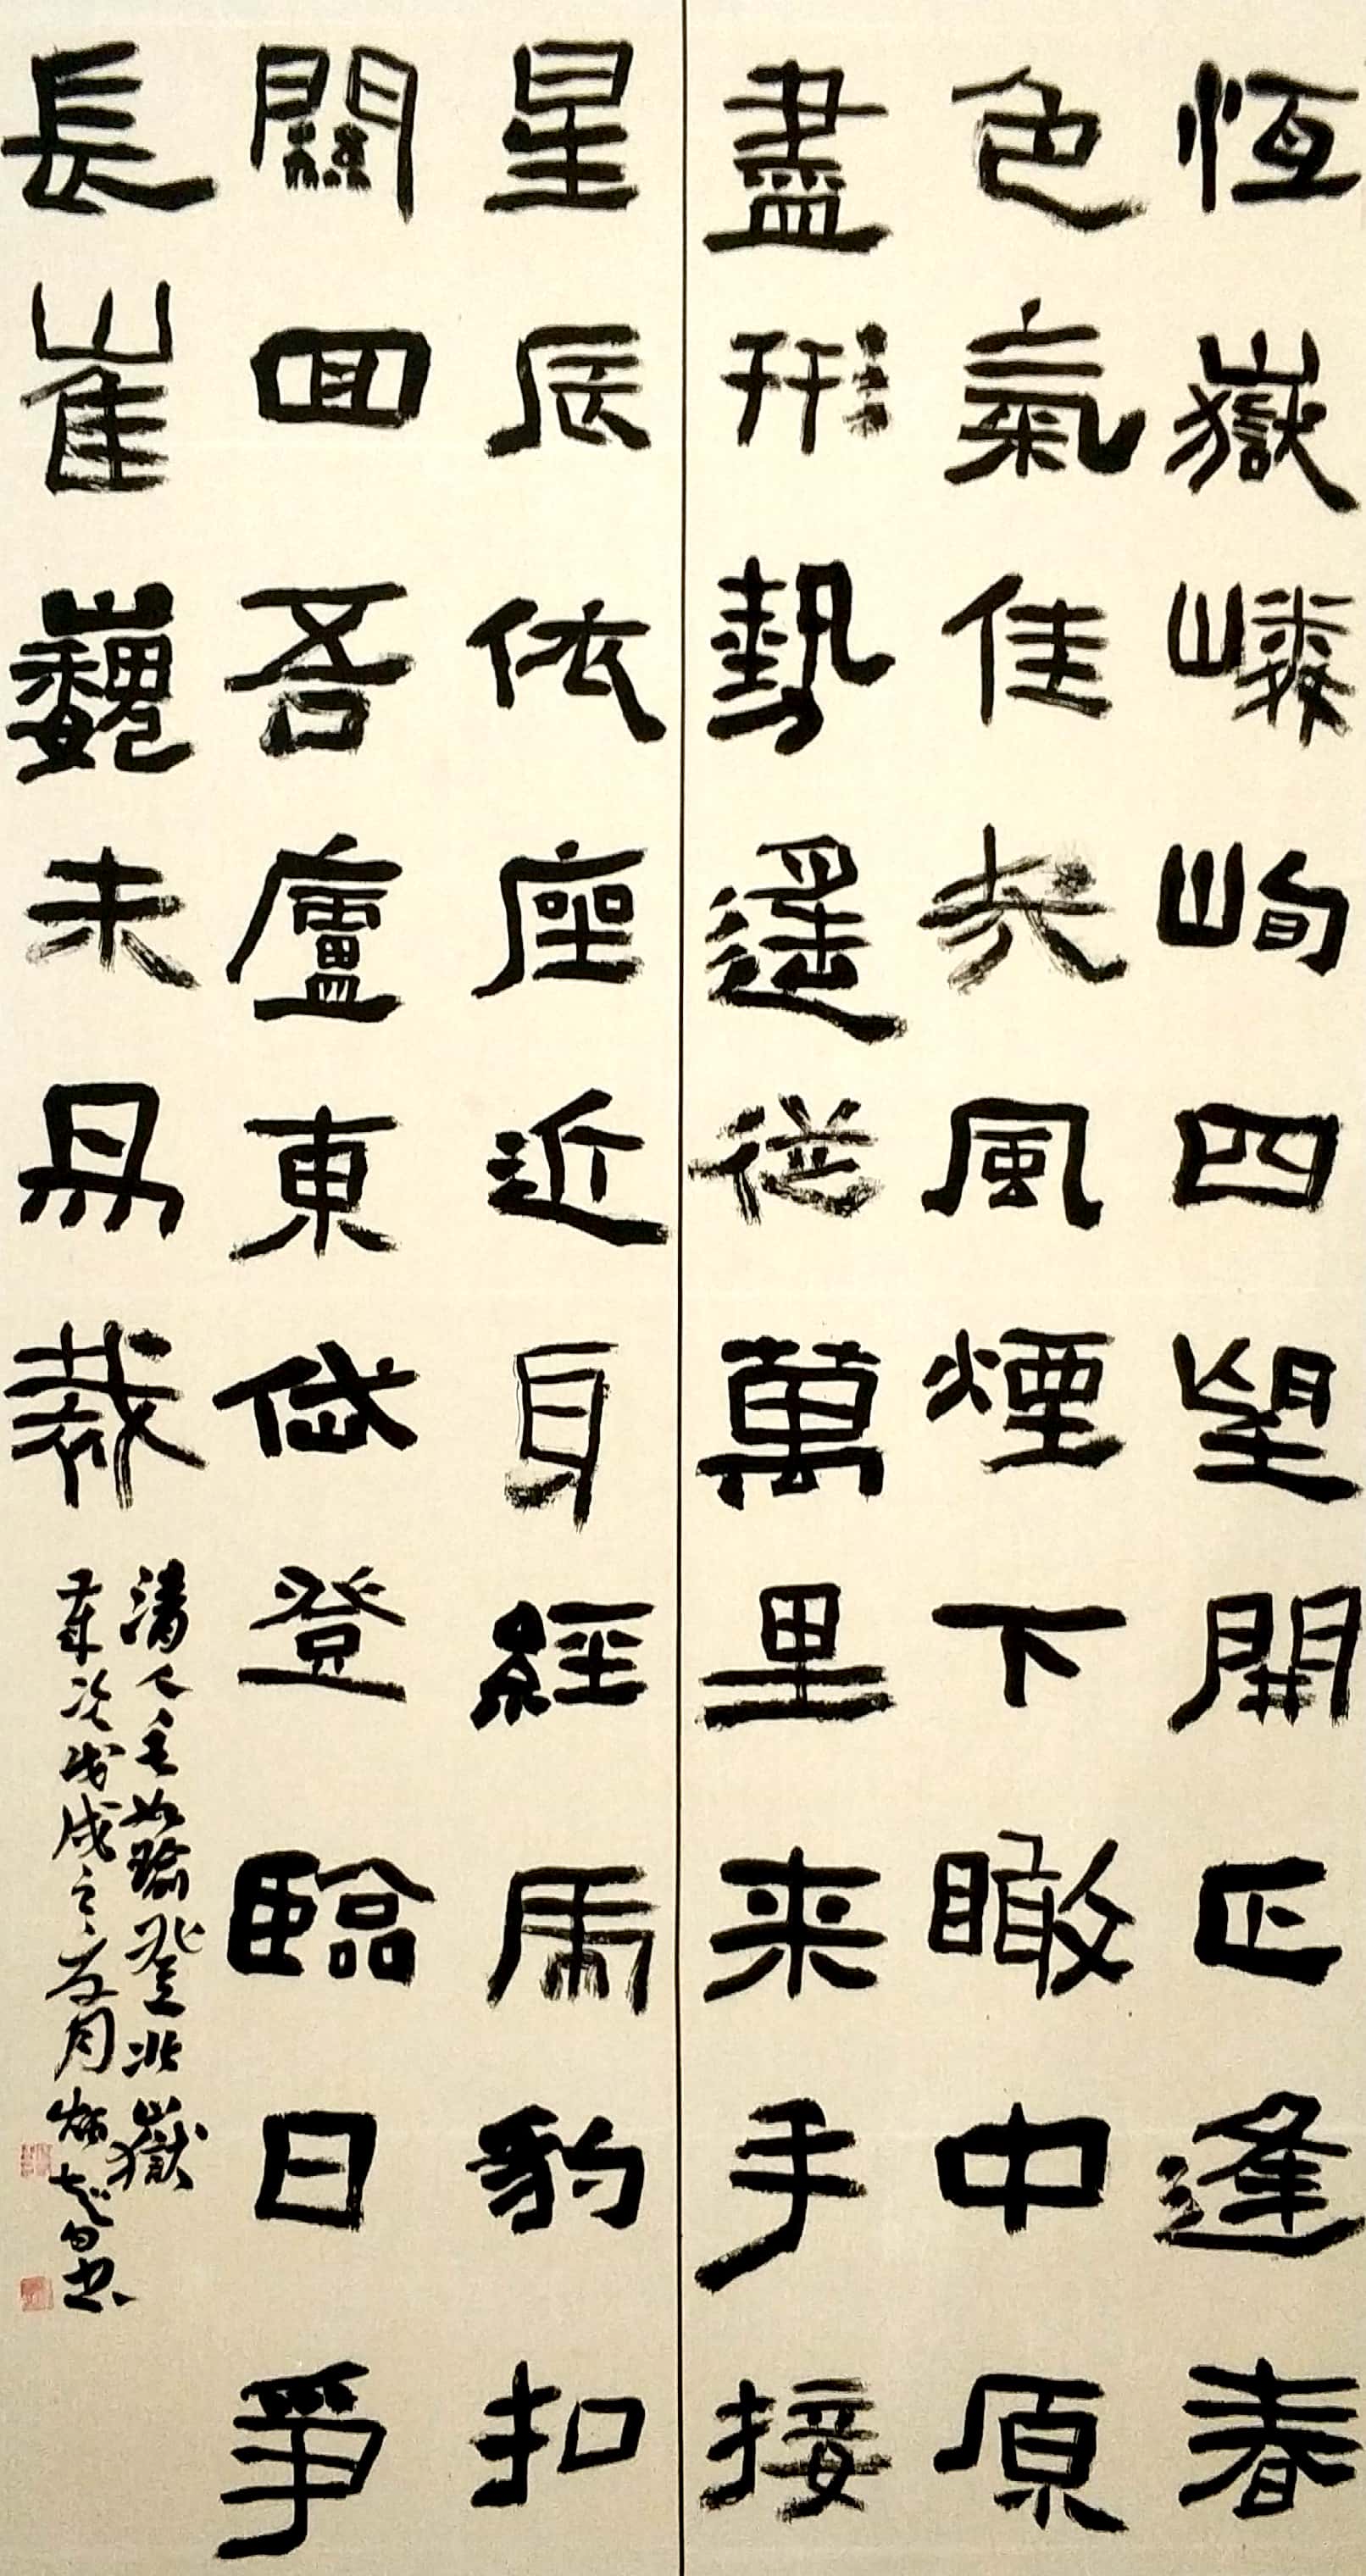 恆嶽嶙峋四望開正逢春
色氣佳哉風煙下瞰中原
盡形勢遙從萬里来手接
星辰依座近身經虎豹扣
關回吾廬東岱登臨日爭
長崔巍未易裁
清人毛如瑜登北嶽
歲次戊戌之夏月
書